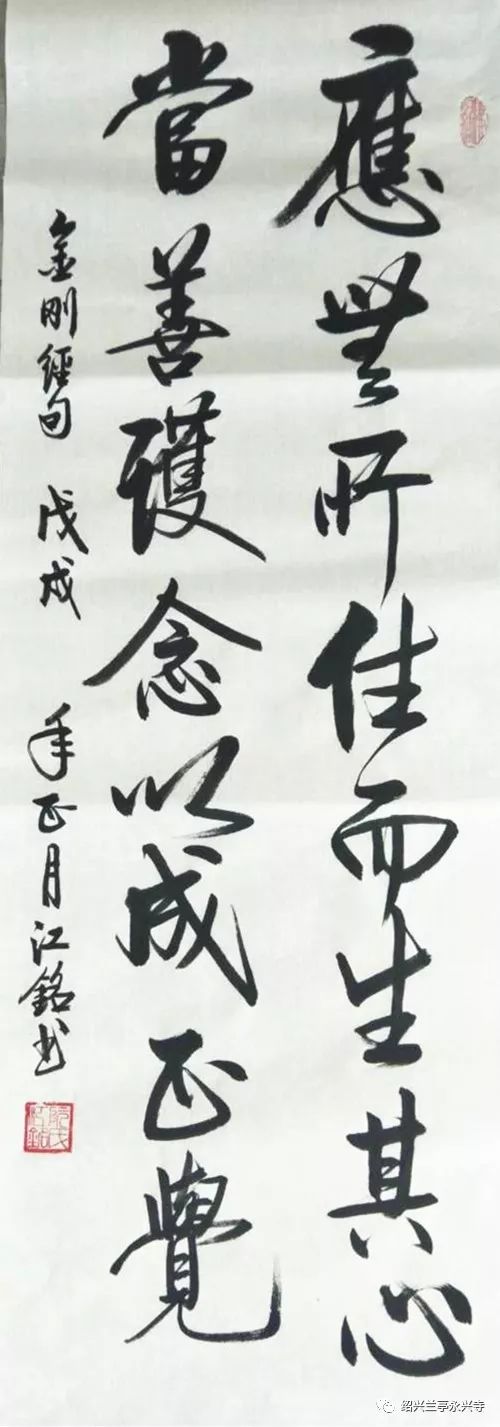 應無所住而生其心
當善護念以成正覺
金刚經句 戊戌年正月江銘书
绍兴兰亭永兴寺